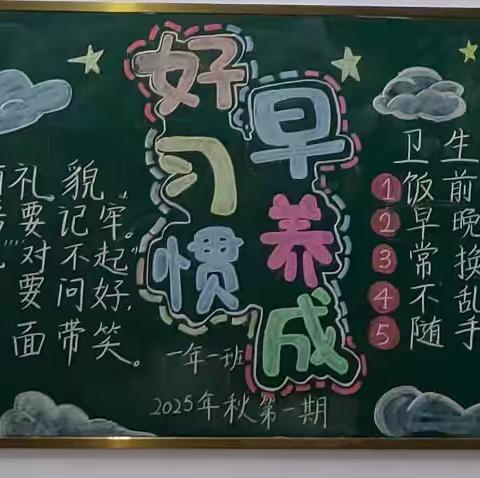 好习惯
早养成
礼貌
要记牢。
”对不起”
要问好,
面带笑。
一年一班
2025年秋第一期
卫生
1 饭前
2 早晚
3 常换
4 不乱
5 随手